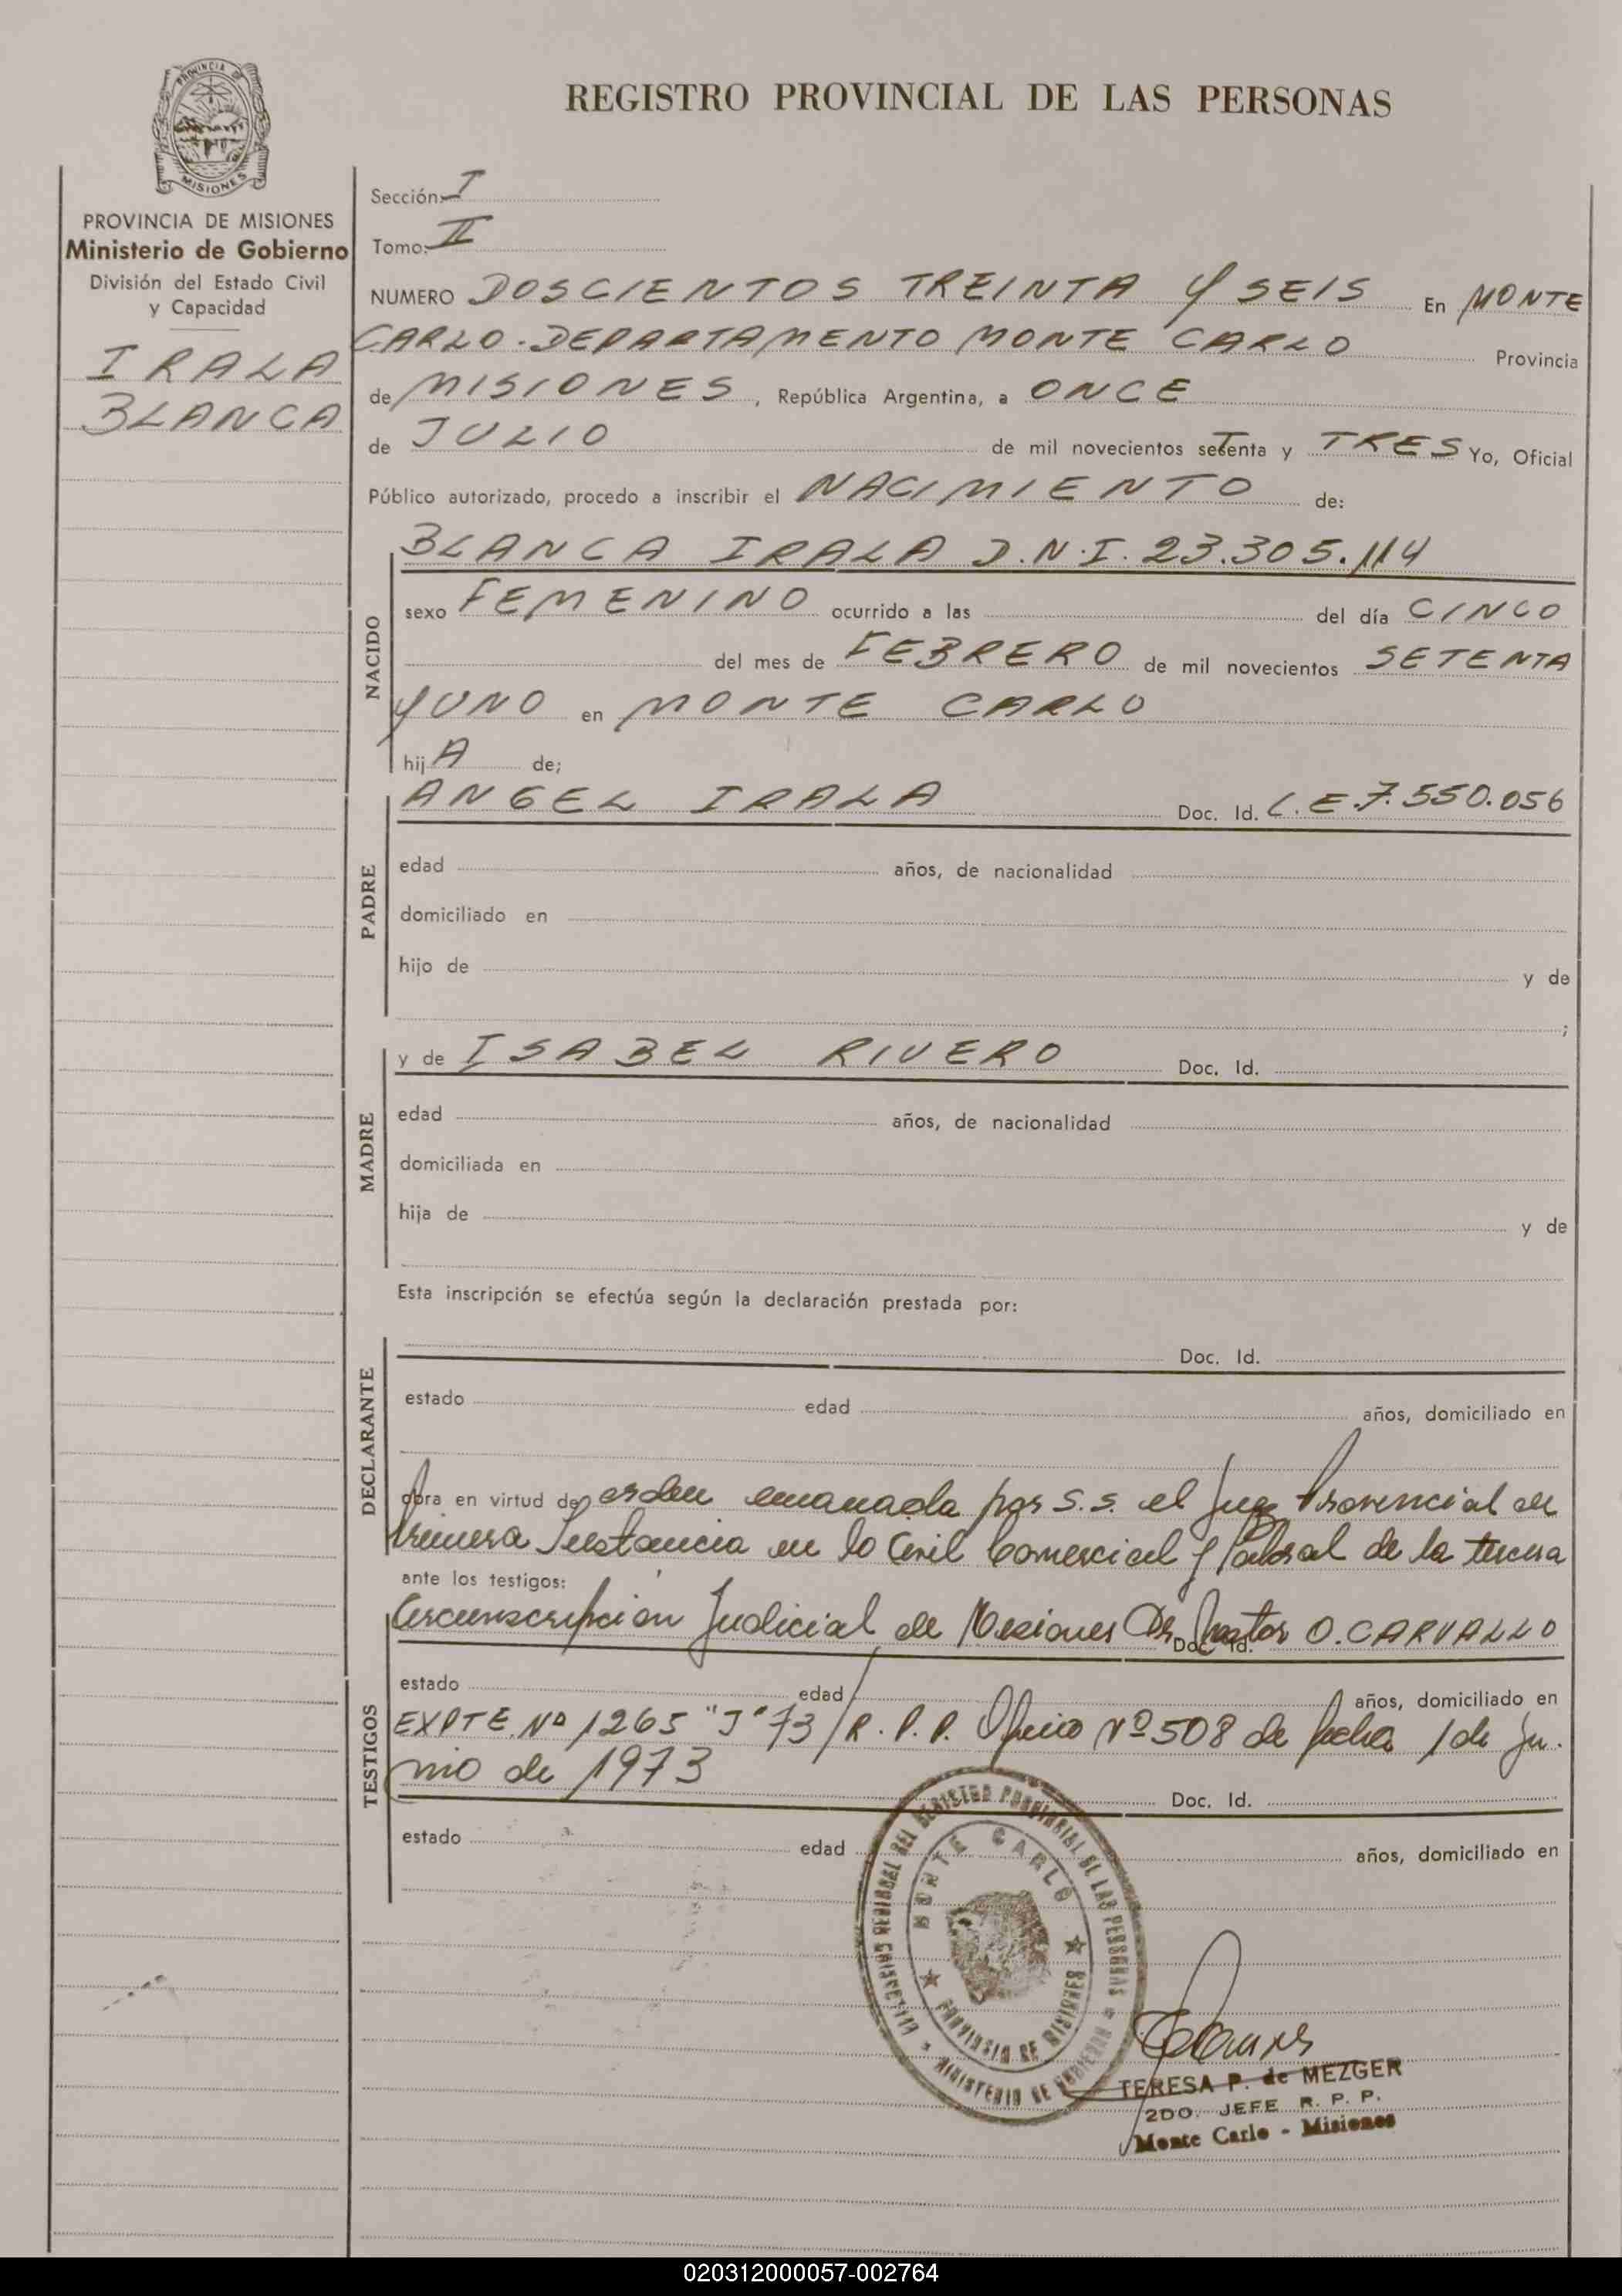 PROVINCIA DE
MISIONES
REGISTRO PROVINCIAL DE LAS PERSONAS
PROVINCIA DE MISIONES
Ministerio de Gobierno
División del Estado Civil
y Capacidad
IRALA
BLANCA
Sección: I
Tomo: II
NUMERO DOSCIENTOS TREINTA Y SEIS En MONTE
CARLO. DEPARTAMENTO MONTE CARLO Provincia
de MISIONES, República Argentina, a ONCE
de JULIO de mil novecientos setenta y TRES Yo, Oficial
Público autorizado, procedo a inscribir el NACIMIENTO de:
NACIDO
BLANCA IRALA D.N.I. 23.305.114
sexo FEMENINO ocurrido a las del día CINCO
del mes de FEBRERO de mil novecientos SETENTA
Y UNO en MONTE CARLO
hij A de;
PADRE
ANGEL IRALA Doc. Id. L.E 7.550.056
edad años, de nacionalidad
domiciliado en
hijo de y de
;
MADRE
y de ISABEL RIVERO Doc. Id.
edad años, de nacionalidad
domiciliada en
hija de y de
Esta inscripción se efectúa según la declaración prestada por:
DECLARANTE
Doc. Id.
estado edad años, domiciliado en
obra en virtud de orden emanada por S.S. el Juez Provincial de
Primera Instancia en lo Civil Comercial y Laboral de la tercera
ante los testigos:
Circunscripción Judicial de Misiones Dr. O. CARVALLO
Doc. Id.
TESTIGOS
estado edad años, domiciliado en
EXPTE. Nº 1265 "J" 73/R.P.P. Oficio Nº 508 de fecha 1 de Ju.
nio de 1973
Doc. Id.
estado edad años, domiciliado en
DEL REGISTRO PROVINCIAL DE LAS PERSONAS
MINISTERIO DE GOBIERNO
MONTE CARLO
PROVINCIA DE MISIONES
TERESA P. de MEZGER
2DO. JEFE R. P. P.
Monte Carlo - Misiones
020312000057-002764